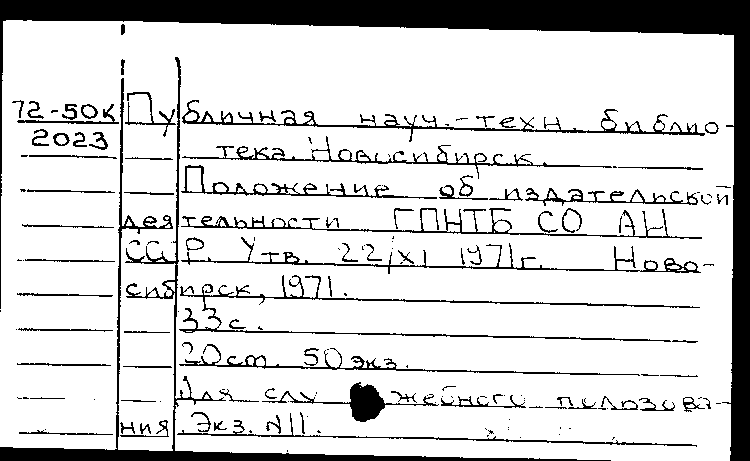 72-50К Публичная науч.-техн. библио-
2023
тека. Новосибирск.
Положение об издательской
деятельности ГПНТБ СО АН
СССР. Утв. 22/XI 1971г. Ново-
сибирск, 1971.
33с.
20см. 50экз.
Для служебного пользова-
ния. Экз. N11.